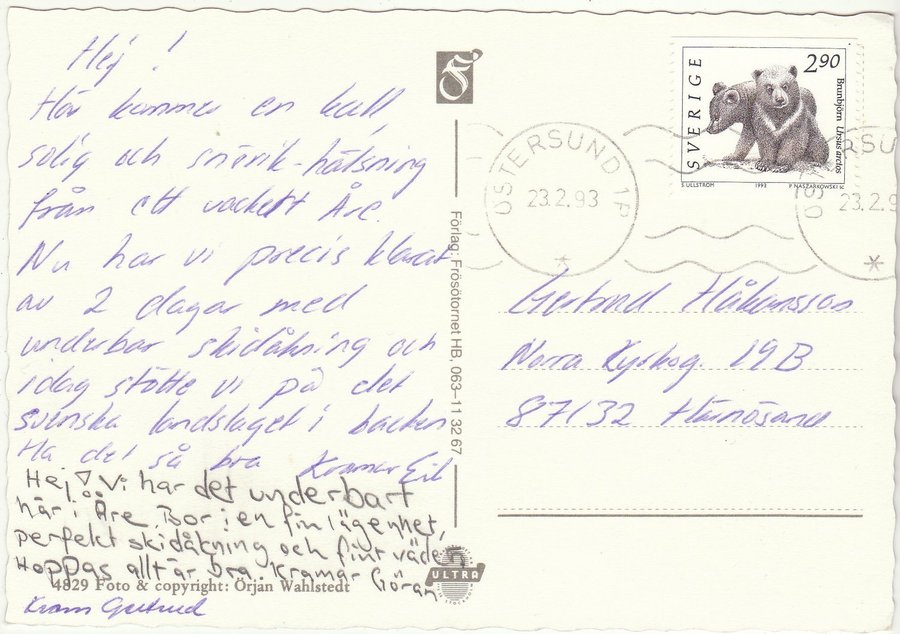 Hej!
Här kommer en kall,
solig och snörik-hälsning
från ett vackert Åre.
Nu har vi precis klarat
av 2 dagar med
underbar skidåkning och
idag stötte vi på det
svenska landslaget i backen
Ha det så bra Kramar
Hej! Vi har det underbart
här i Åre. Bor i en fin lägenhet,
perfekt skidåkning och fint väder,
Hoppas allt är bra. Kramar Göran
4829 Foto & copyright: Örjan Wahlstedt
Kram Gertrud
Förlag: Frösötornet HB, 063-11 32 67
ULTRA
SVERIGE
2.90
Brunbjörn Ursus arctos
S ULLSTRÖM 1993 P NASZARKOWSKI SC
ÖSTERSUND 1P
23.2.93
23.2.9
Gertrud Håkansson
Norra Kyrkog. 19B
87132 Härnösand